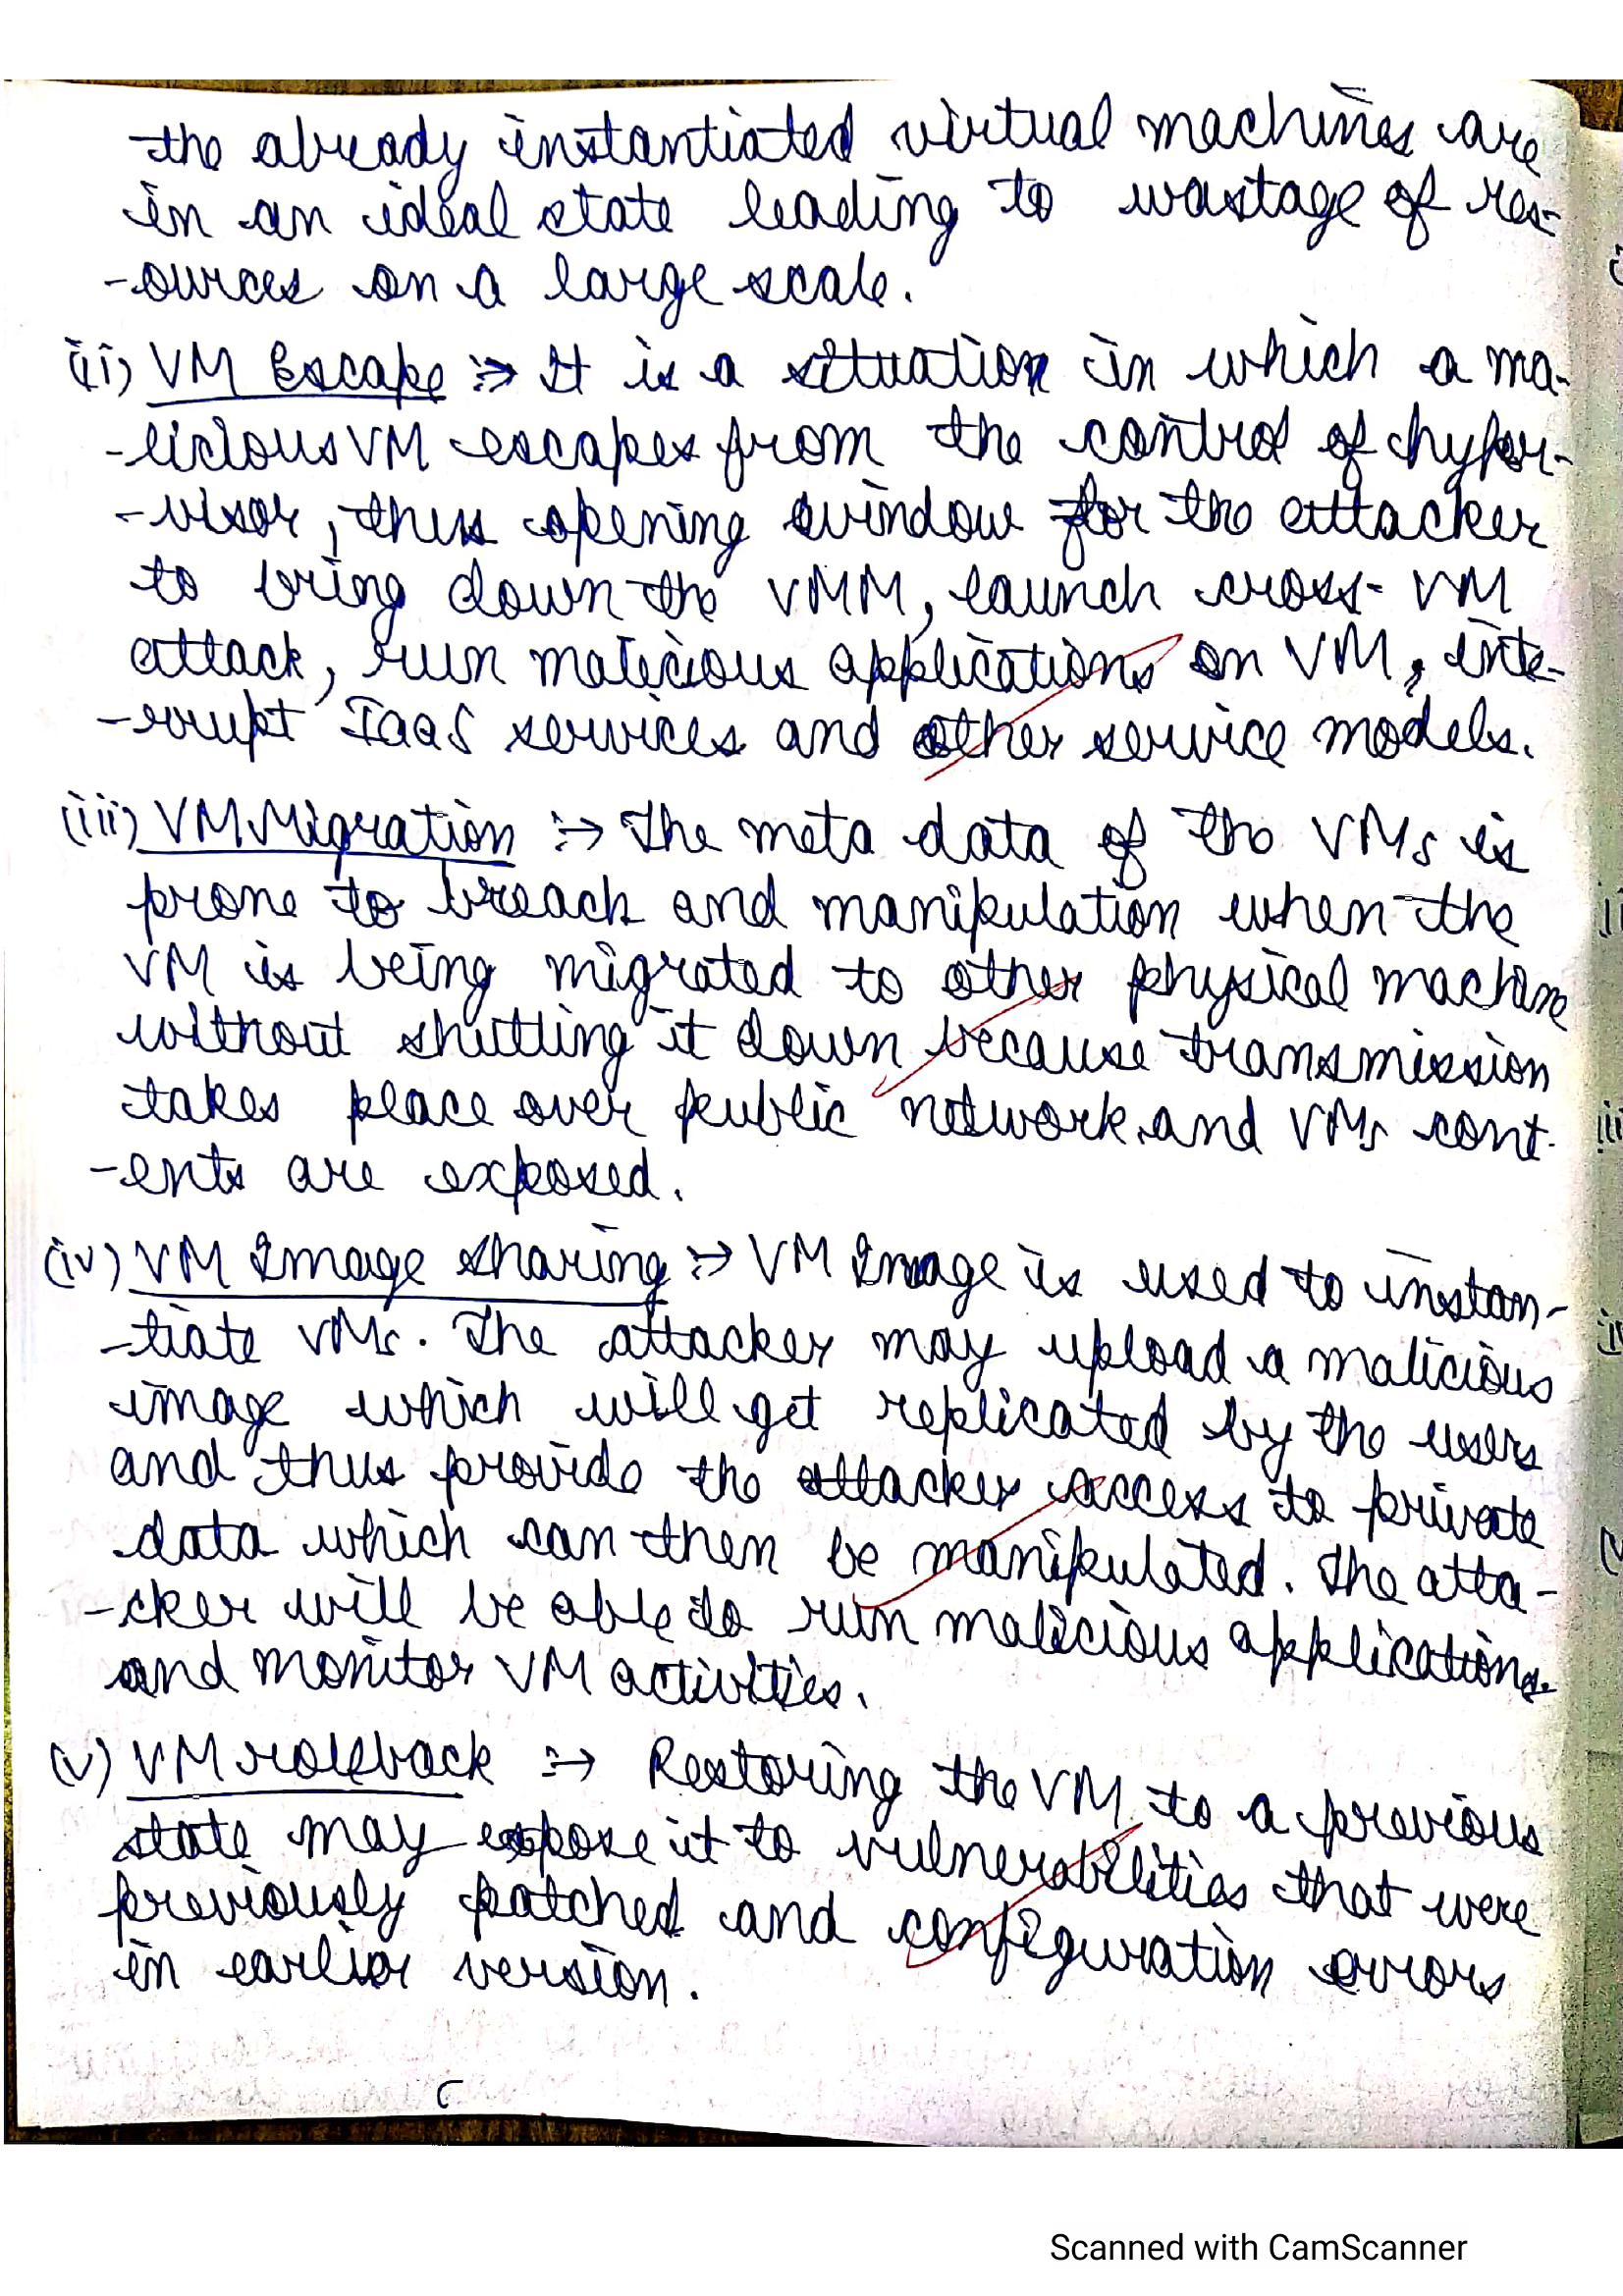 the already instantiated virtual machines are
in an ideal state leading to wastage of res-
-ources on a large scale.
(ii) VM Escape :→ It is a situation in which a ma-
-licious VM escapes from the control of hyper-
-visor, thus opening window for the attacker
to bring down the VMM, launch cross-VM
attack, run malicious applications on VM, inte-
-rrupt IaaS services and other service models.
(iii) VM Migration :→ The meta data of the VMs is
prone to breach and manipulation when the
VM is being migrated to other physical machine
without shutting it down because transmission
takes place over public network and VMs cont-
-ents are exposed.
(iv) VM Image Sharing :→ VM Image is used to instan-
-tiate VMs. The attacker may upload a malicious
image which will get replicated by the users
and thus provide the attacker access to private
data which can then be manipulated. The atta-
-cker will be able to run malicious applications
and monitor VM activities.
(v) VM rollback :→ Restoring the VM to a previous
state may expose it to vulnerabilities that were
previously patched and configuration errors
in earlier version.
Scanned with CamScanner